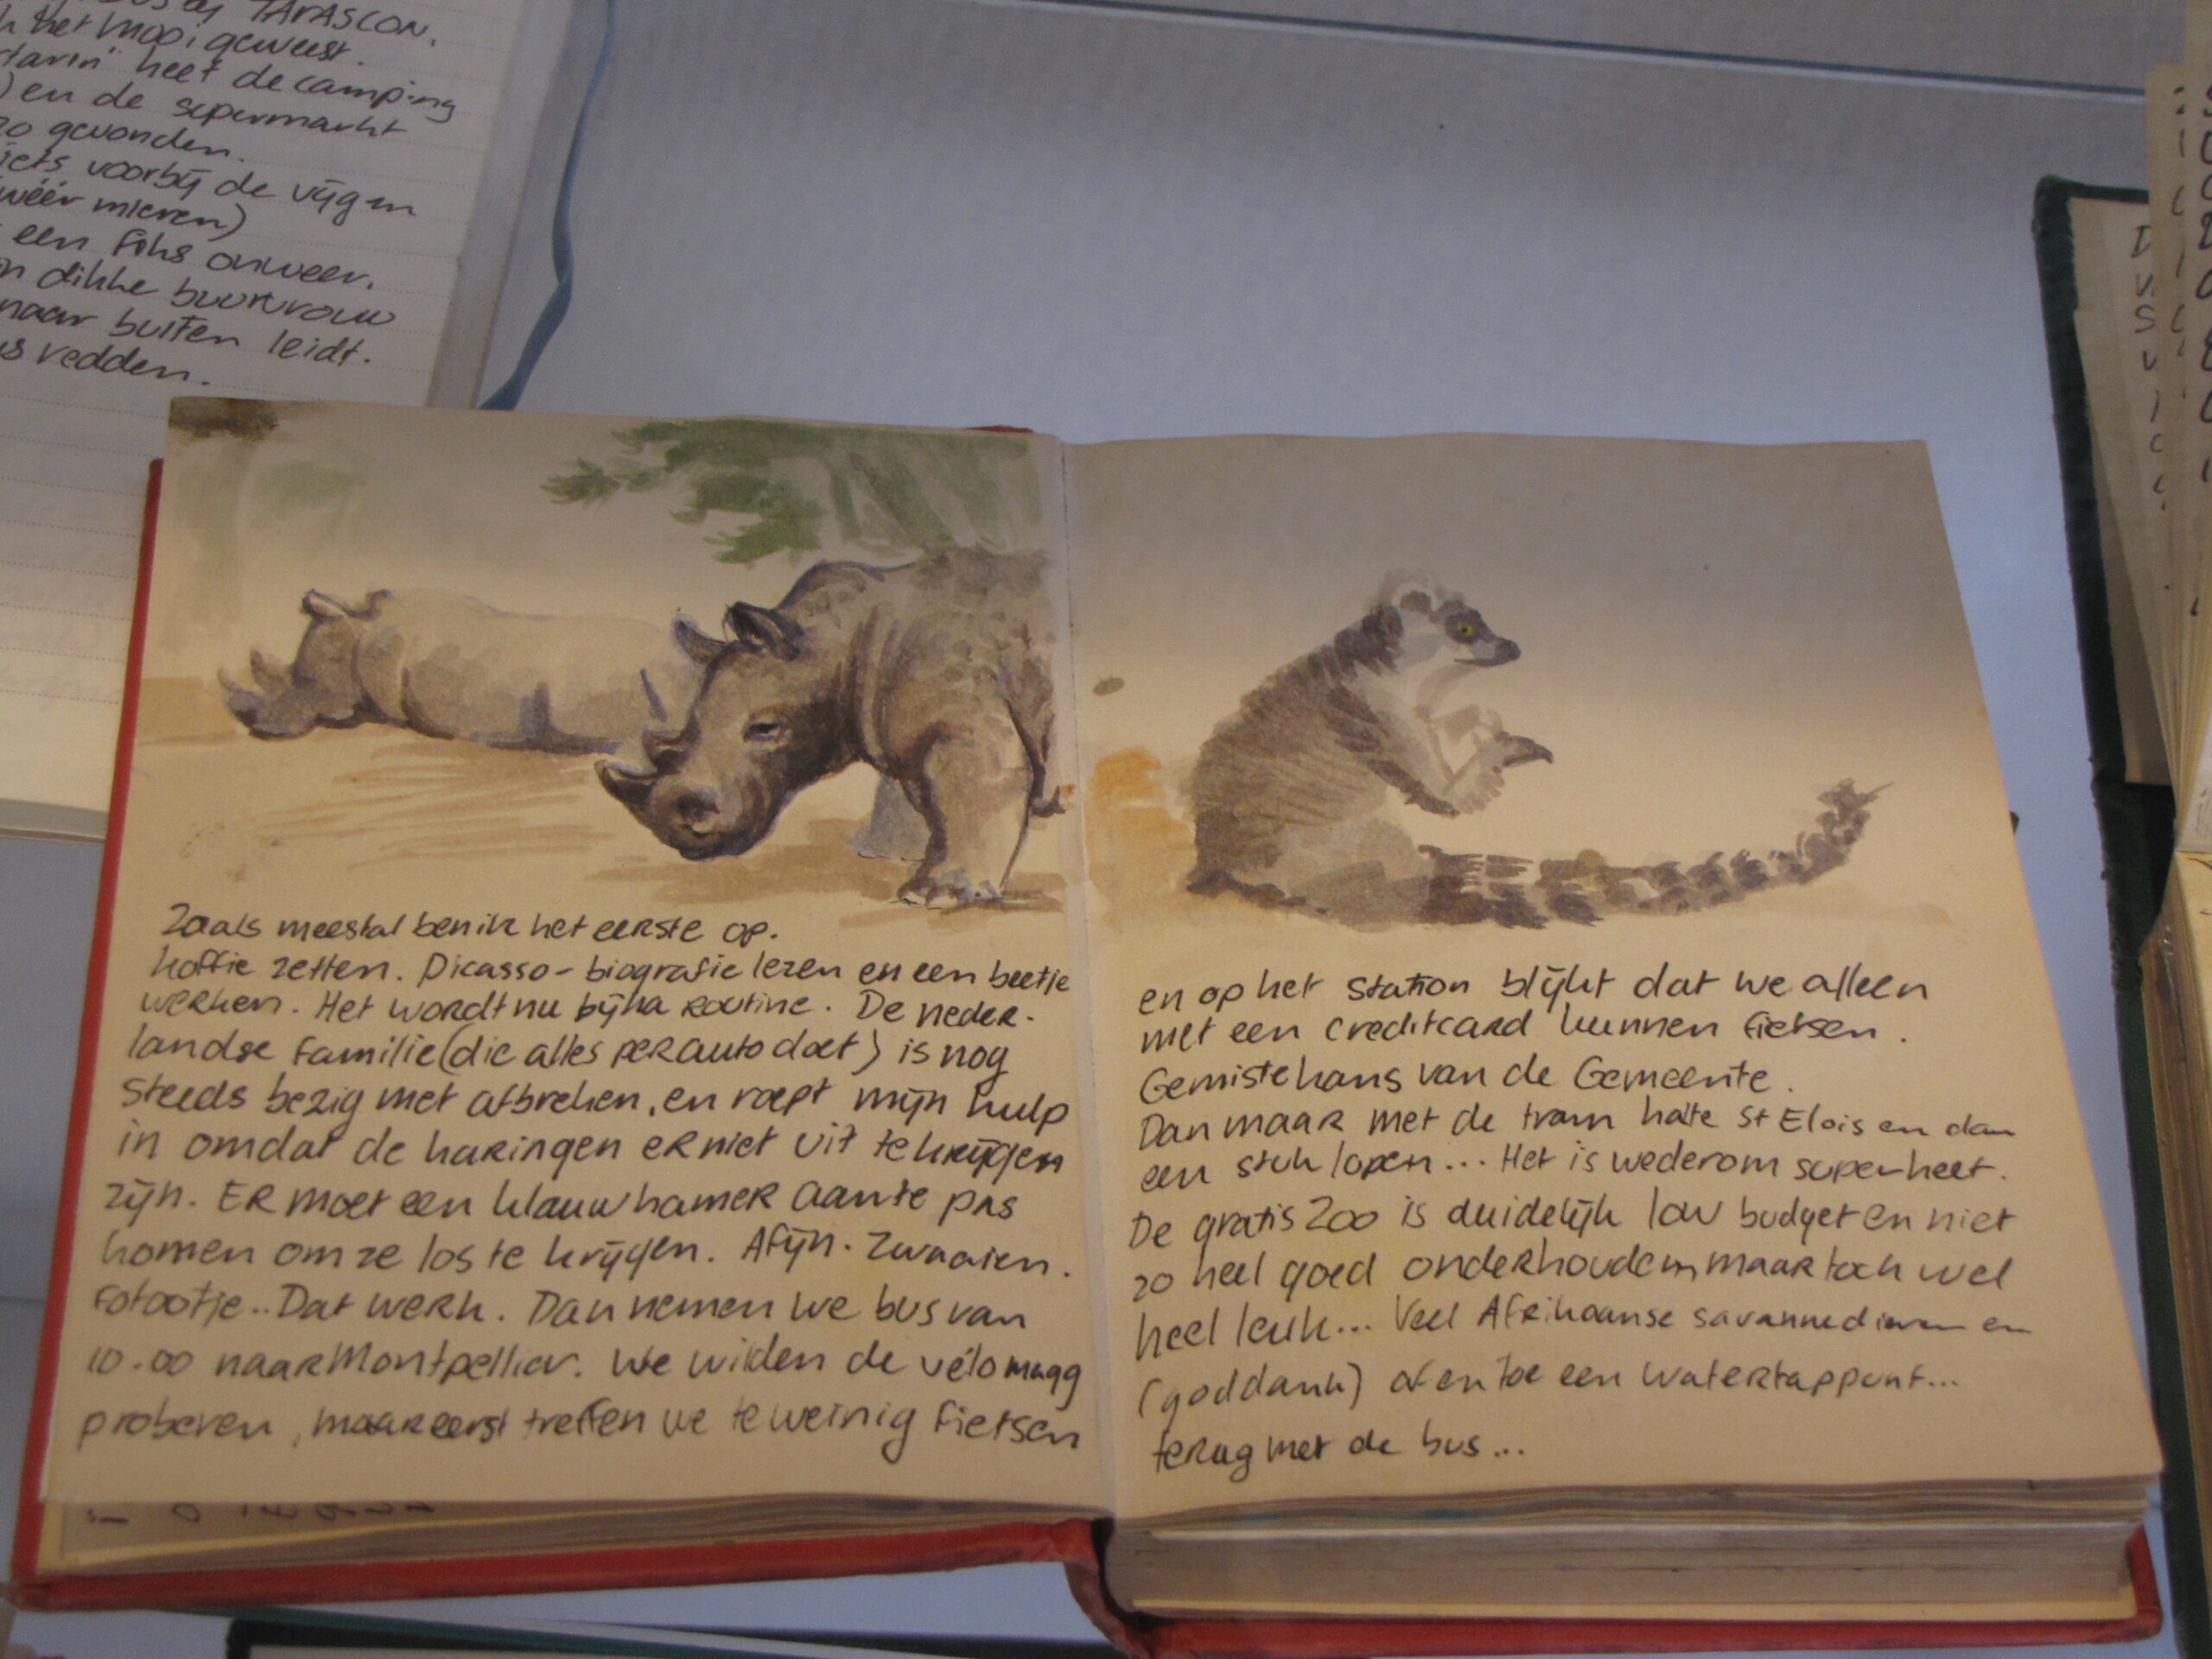 TARASCON.
het mooi geweest.
heet de camping
en de sepermarkt
gevonden.
iets voorbij de vijgen
wéér mieren)
een fiks onweer.
dikke buurvrouw
naar buiten leidt.
redden.
Zoals meestal ben ik het eerste op.
koffie zetten. Picasso-biografie lezen en een beetje
werken. Het wordt nu bijna routine. De neder-
landse familie (die alles per auto doet) is nog
steeds bezig met afbreken, en roept mijn hulp
in omdat de haringen er niet uit te krijgen
zijn. Er moet een klauwhamer aan te pas
komen om ze los te krijgen. Afijn. Zwaaien.
Fotootje.. Dat werk. Dan nemen we bus van
10.00 naar Montpellier. We wilden de vélomagg
proberen, maar eerst treffen we te weinig fietsen
en op het station blijkt dat we alleen
met een creditcard kunnen fietsen.
Gemiste kans van de Gemeente.
Dan maar met de tram halte St Elois en dan
een stuk lopen... Het is wederom superheet.
De gratis Zoo is duidelijk low budget en niet
zo heel goed onderhouden, maar toch wel
heel leuk... Veel Afrikaanse savannedieren en
(goddank) af en toe een watertappunt...
terug met de bus...